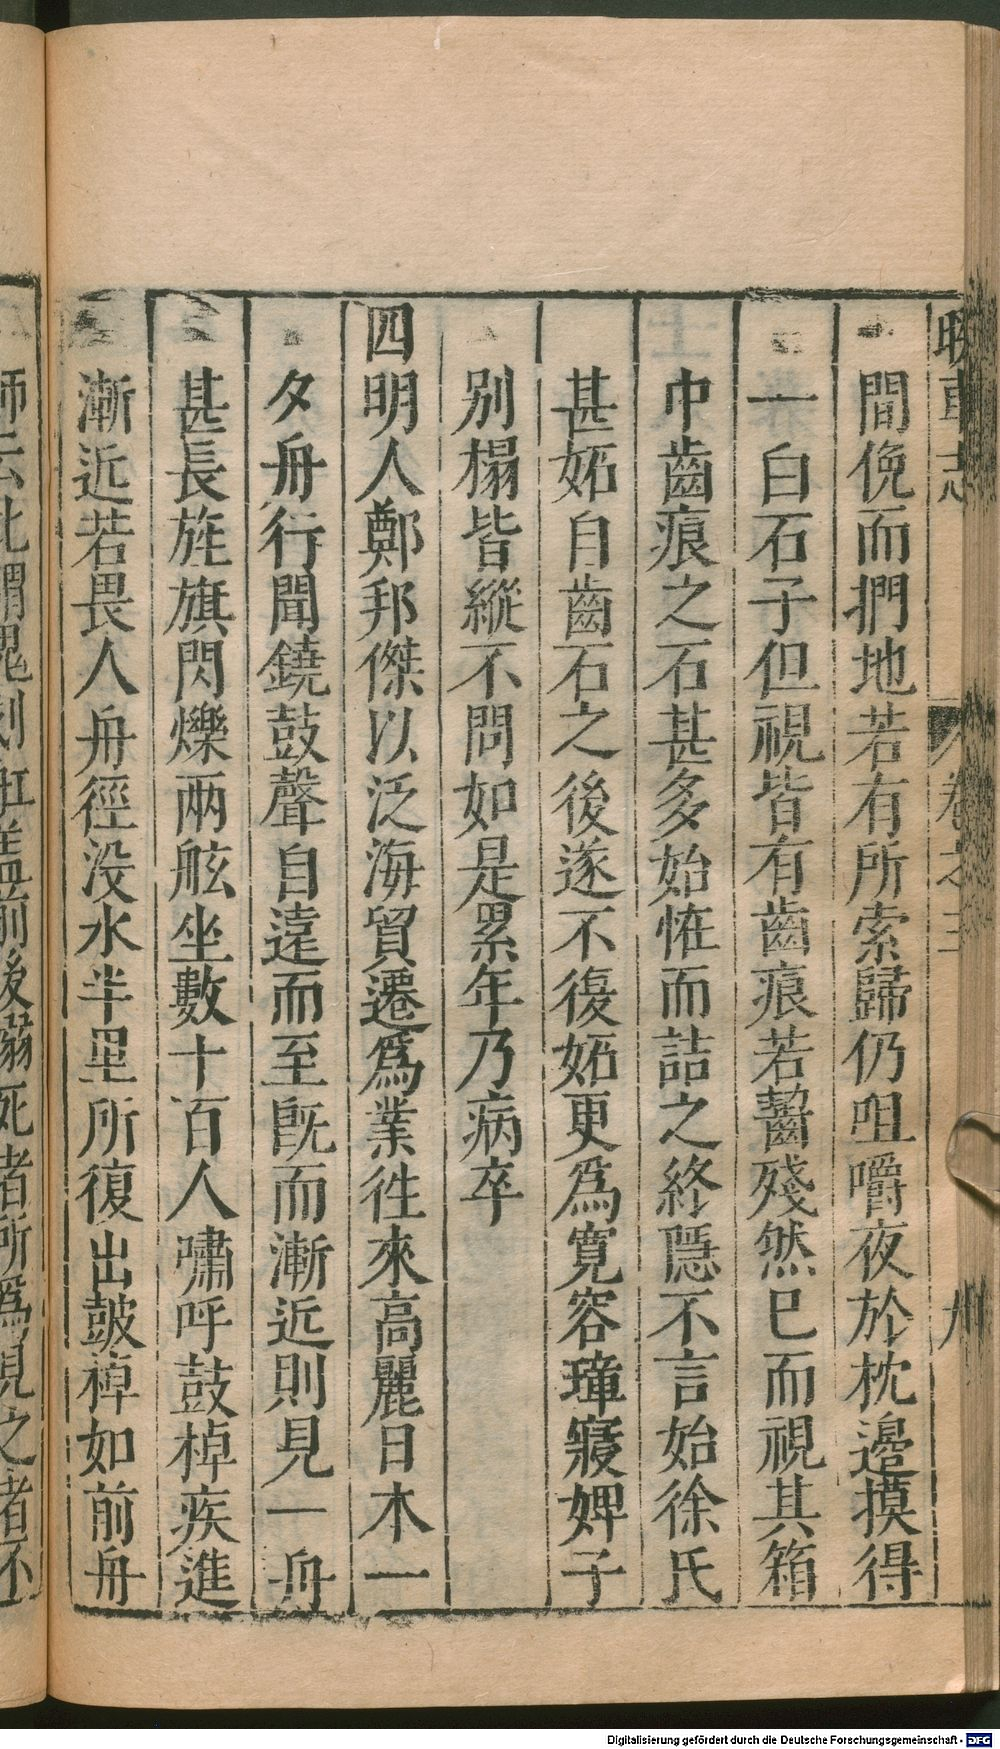 睽車志 卷之三 九
間俛而捫地若有所索歸仍咀嚼夜於枕邊摸得
一白石子但視皆有齒痕若齧殘然已而視其箱
巾齒痕之石甚多始恠而詰之終隱不言始徐氏
甚妬自齒石之後遂不復妬更爲寛容瑋寢婢子
別榻皆縱不問如是累年乃病卒
四明人鄭邦傑以泛海貿遷爲業徃來高麗日本一
夕舟行聞鐃鼓聲自遠而至旣而漸近則見一舟
甚長旌旗閃爍兩舷坐數十百人嘯呼鼓棹疾進
漸近若畏人舟徑没水半里所復出鼓棹如前舟
師云此謂鬼刻舡蓋前後溺死者所爲見之者不
Digitalisierung gefördert durch die Deutsche Forschungsgemeinschaft - DFG